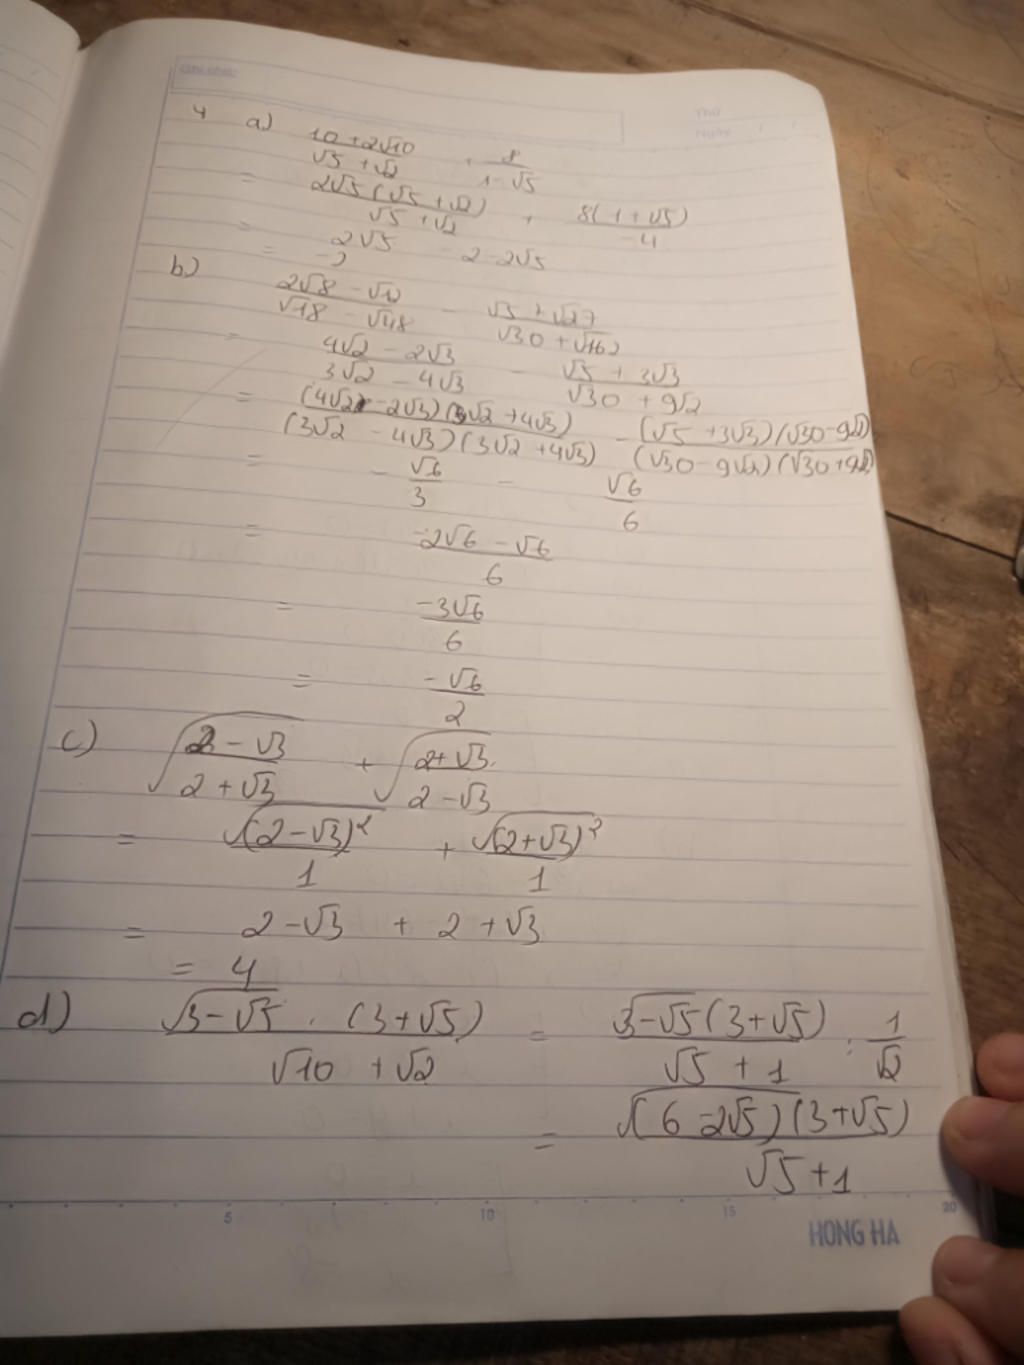 4 a) (10 + 2√10)/(√5 + √2) + 8/(1 - √5)
= 2√5(√5 + √2)/(√5 + √2) + 8(1 + √5)/-4
= 2√5 - 2 - 2√5
= -2
b) (2√8 - √12)/(√18 - √48) - (√5 + √27)/(√30 + √162)
= (4√2 - 2√3)/(3√2 - 4√3) - (√5 + 3√3)/(√30 + 9√2)
= (4√2 - 2√3)(3√2 + 4√3)/(3√2 - 4√3)(3√2 + 4√3) - (√5 + 3√3)(√30 - 9√2)/(√30 - 9√2)(√30 + 9√2)
= -√6/3 - √6/6
= (-2√6 - √6)/6
= -3√6/6
= -√6/2
c) √((2 - √3)/(2 + √3)) + √((2 + √3)/(2 - √3))
= √(2 - √3)²/1 + √(2 + √3)²/1
= 2 - √3 + 2 + √3
= 4
d) √(3 - √5) . (3 + √5)/(√10 + √2) = 3 - √5(3 + √5)/(√5 + 1) : 1/√2
= √(6 - 2√5)(3 + √5)/(√5 + 1)
5 10 15 20
HONG HA